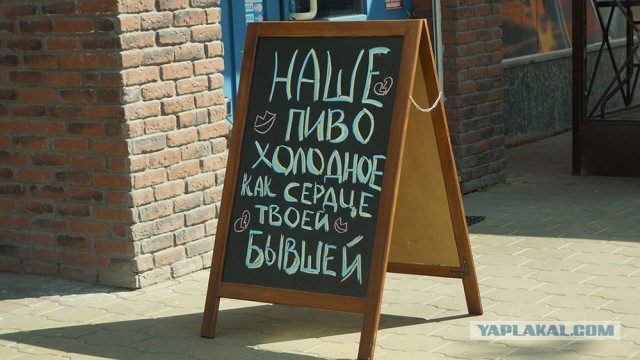 НАШЕ
ПИВО
ХОЛОДНОЕ
КАК СЕРДЦЕ
ТВОЕЙ
БЫВШЕЙ
YAPLAKAL.COM